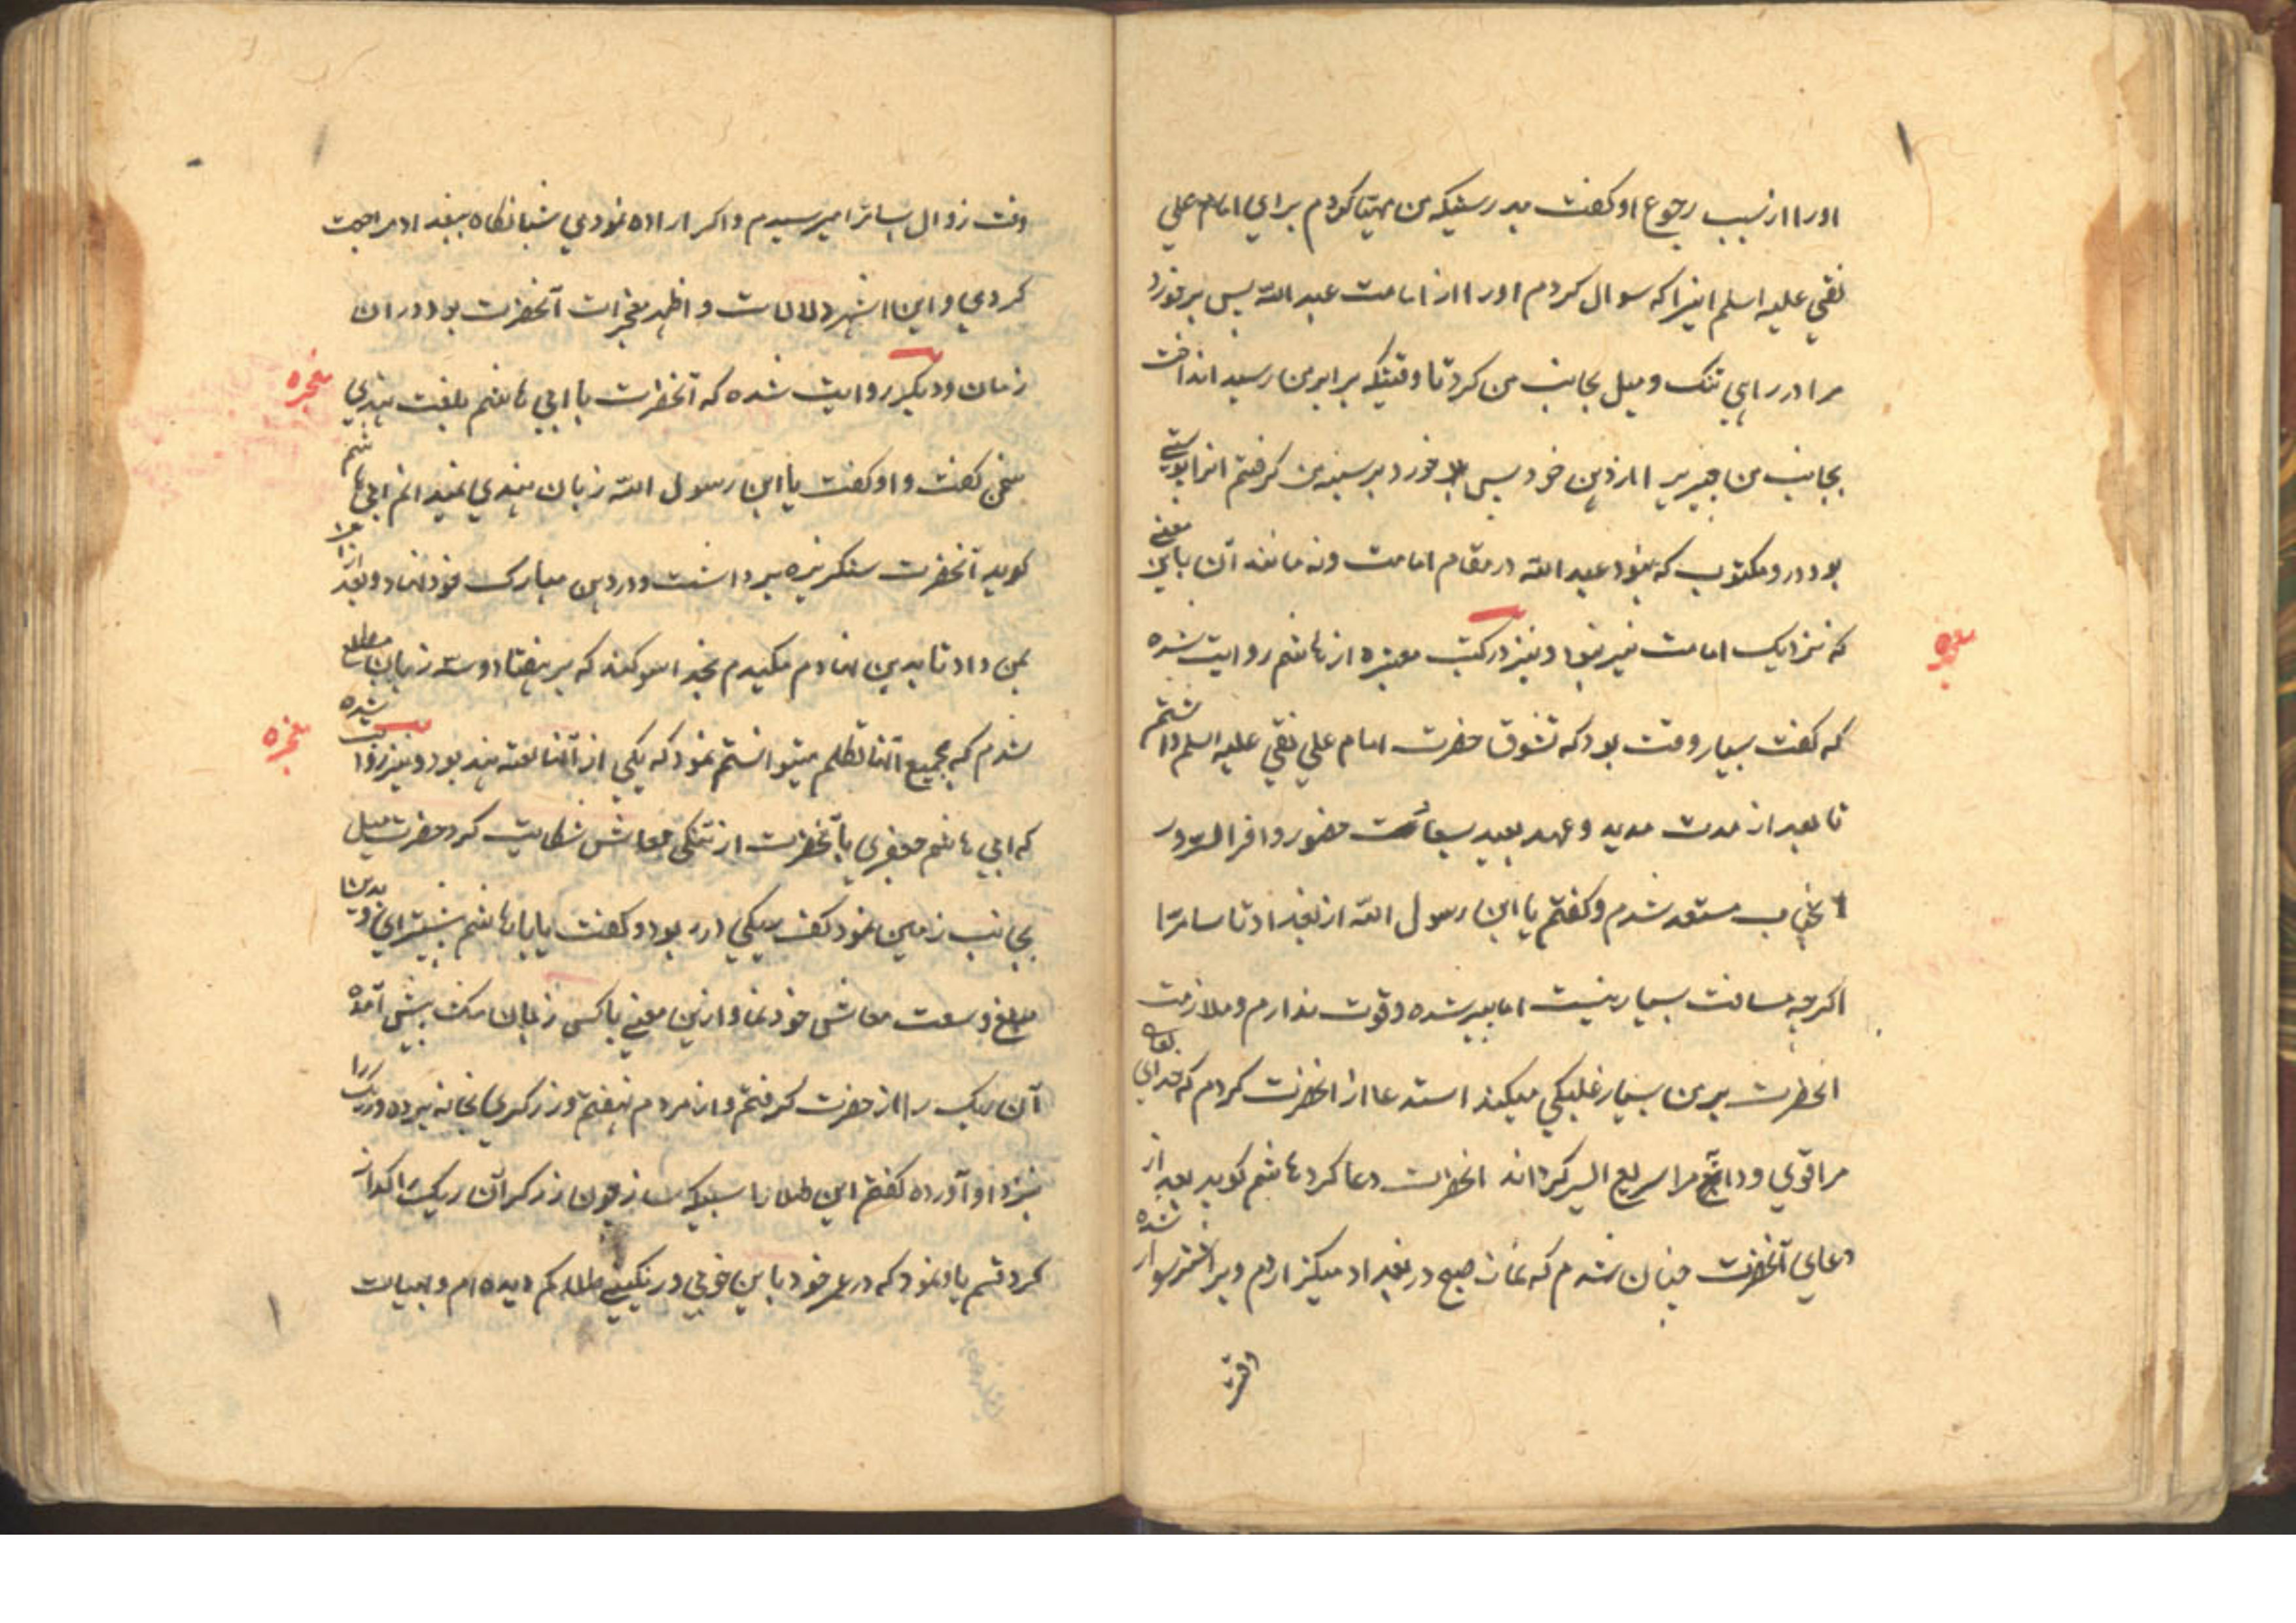 اورا از سبب رجوع او کفت بدرستیکه من مهیا کردم برای امام علی
نقی علیه اسلم انیرا که سوال کردم اورا از امامت عبد الله پس برخورد
مرا در راهی تنک و میل بجانب من کرد تا وقتیکه برابر من رسید انداخت
بجانب من چیزیرا از دهن خود پس خورد بر سینه من کرفتم انرا
بود درو مکتوب که نبود عبد الله در مقام امامت و نه مانند آن باین معنی
که نزدیک امامت نیز نبود و نیز در کتب معتبره از هاشم روایت شده
معجزه
که کفت بسیار وقت بود که تشوق حضرت امام علی نقی علیه اسلم داشتم
تا بعد از مدت مدید و عهد بعید بسعادت حضور وافر السرور
مستعد شدم و کفتم یا ابن رسول الله از بغداد تا سامرا
اکرچه مسافت بسیار نیست اما پیر شده و قوت ندارم و ملازمت
انحضرت بر من بسیار غلیکی میکند استدعا از انحضرت کردم که خدای تعالی
مرا قوی و دابه مرا سریع السیر کرداند انحضرت دعا کرد هاشم کوید بعد از
دعای آنحضرت چنان شدم که نماز صبح در بغداد میکزاردم و بر اشتر سوار شده
وقت
وقت زوال بسامرا میرسیدم و اکر اراده نمودی شبانکاه ببغداد مراجعت
کردی و این اشهر دلالات و اظهر معجزات آنحضرت بود دران
زمان و دیکر روایت شده که آنحضرت با ابی هاشم بلغت هندی
معجزه
سخن کفت و او کفت یا ابن رسول الله زبان هندی نمیدانم ابی هاشم
کوید آنحضرت سنکریزه برداشت و در دهن مبارک خود نهاد و بعد ازان
بمن داد تا بدهن نهادم مکیدم بخدا سوکند که بر هفتاد و سه زبان مطلع
شدم که بجمیع آنها تکلم میتوانستم نمود که یکی از آنها لغه هند بود و نیز روایت شده
معجزه
که ابی هاشم جعفری بآنحضرت از تنکی معاش شکایت کرد حضرت میل
بجانب زمین نمود کف ریکی در ربود و کفت یا ابا هاشم بستان و بدین
مبلغ وسعت معاش خود نما و ازین معنی با کسی زبان مکشای
آن ریک را از حضرت کرفتم و از مردم نهفتم و زرکری بخانه برده و ریک را
نزد او آورده کفتم این طلا را سبیکه ساز چون زرکر آن ریک را کداز
کرد قسم یاد نمود که در عمر خود باین خوبی و رنکینی طلا کم دیده ام و بغایت